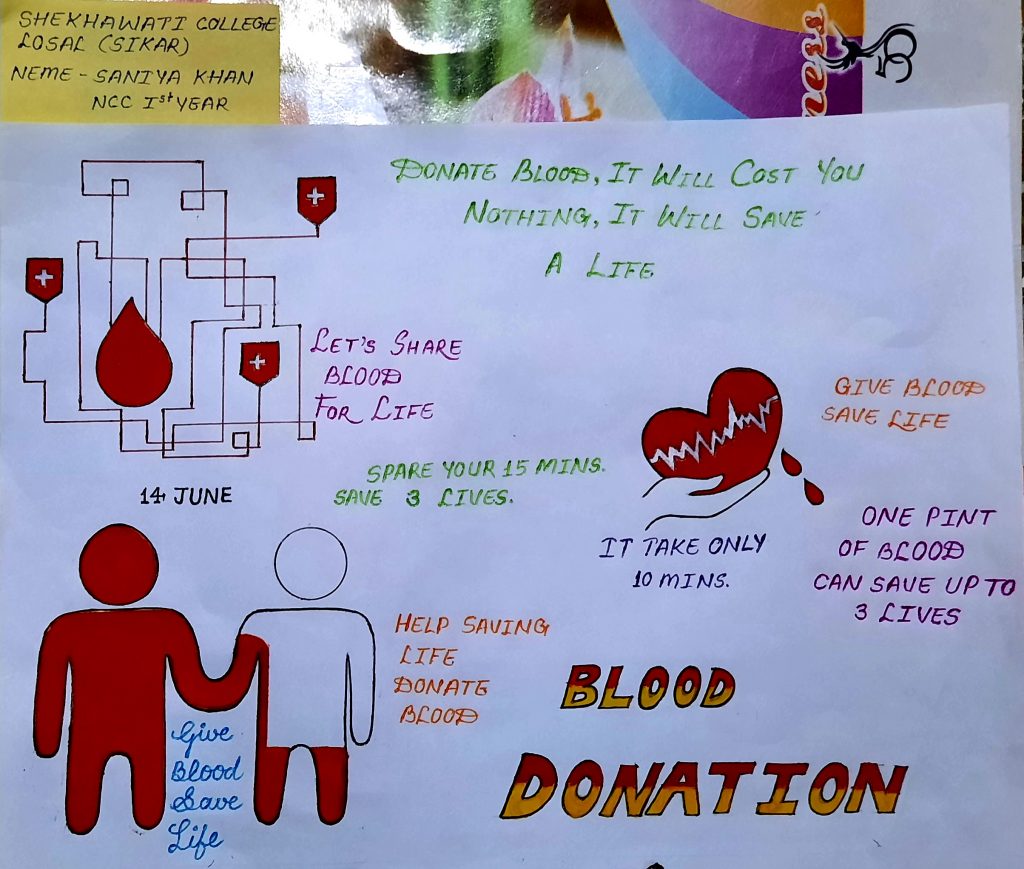 SHEKHAWATI COLLEGE
LOSAL (SIKAR)
NEME - SANIYA KHAN
NCC Ist YEAR
DONATE BLOOD, IT WILL COST YOU
NOTHING, IT WILL SAVE
A LIFE
LET'S SHARE
BLOOD
FOR LIFE
GIVE BLOOD
SAVE LIFE
SPARE YOUR 15 MINS.
SAVE 3 LIVES.
14 JUNE
IT TAKE ONLY
10 MINS.
ONE PINT
OF BLOOD
CAN SAVE UP TO
3 LIVES
HELP SAVING
LIFE
DONATE
BLOOD
Give
Blood
Save
Life
BLOOD
DONATION